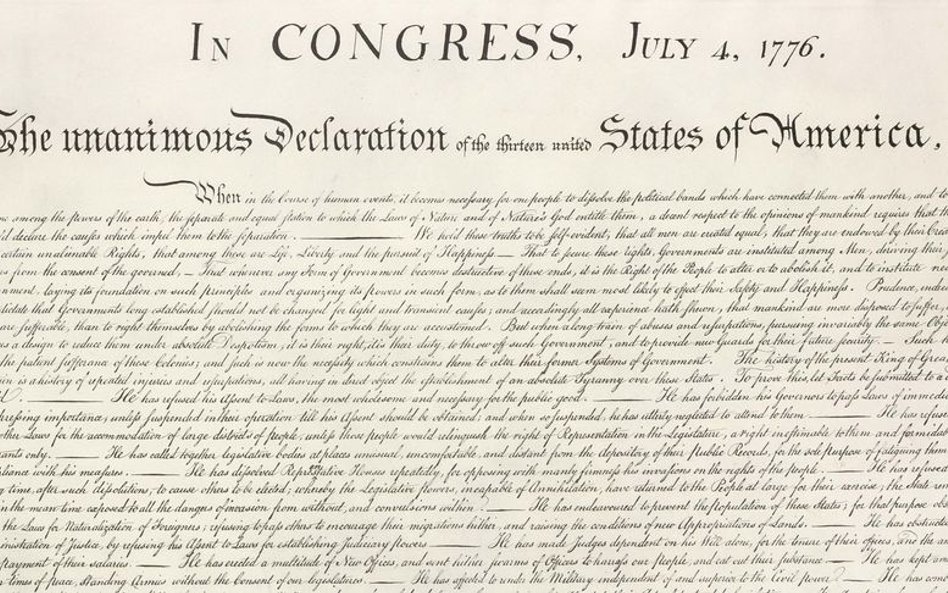 In CONGRESS, July 4, 1776.
The unanimous Declaration of the thirteen united States of America,
When in the Course of human events, it becomes necessary for one people to dissolve the political bands which have connected them with another, and to
among the powers of the earth, the separate and equal station to which the Laws of Nature and of Nature's God entitle them, a decent respect to the opinions of mankind requires that
declare the causes which impel them to the separation. — We hold these truths to be self-evident, that all men are created equal, that they are endowed by their
certain unalienable Rights, that among these are Life, Liberty and the pursuit of Happiness. — That to secure these rights, Governments are instituted among Men, deriving their
from the consent of the governed, — That whenever any Form of Government becomes destructive of these ends, it is the Right of the People to alter or to abolish it, and to institute
laying its foundation on such principles and organizing its powers in such form, as to them shall seem most likely to effect their Safety and Happiness. Prudence,
dictate that Governments long established should not be changed for light and transient causes; and accordingly all experience hath shewn, that mankind are more disposed to suffer,
are sufferable, than to right themselves by abolishing the forms to which they are accustomed. But when a long train of abuses and usurpations, pursuing invariably the same
a design to reduce them under absolute Despotism, it is their right, it is their duty, to throw off such Government, and to provide new Guards for their future security. — Such
the patient sufferance of these Colonies; and such is now the necessity which constrains them to alter their former Systems of Government. The history of the present King of
is a history of repeated injuries and usurpations, all having in direct object the establishment of an absolute Tyranny over these States. To prove this, let Facts be submitted to a
— He has refused his Assent to Laws, the most wholesome and necessary for the public good. — He has forbidden his Governors to pass Laws of
pressing importance, unless suspended in their operation till his Assent should be obtained; and when so suspended, he has utterly neglected to attend to them. — He has
other Laws for the accommodation of large districts of people, unless those people would relinquish the right of Representation in the Legislature, a right inestimable to them and
only. — He has called together legislative bodies at places unusual, uncomfortable, and distant from the depository of their Public Records, for the sole purpose of fatiguing them
with his measures. — He has dissolved Representative Houses repeatedly, for opposing with manly firmness his invasions on the rights of the people. — He has refused
time, after such dissolutions, to cause others to be elected; whereby the Legislative powers, incapable of Annihilation, have returned to the People at large for their exercise; the State
in the mean time exposed to all the dangers of invasion from without, and convulsions within. — He has endeavoured to prevent the Population of these States; for that purpose
the Laws for Naturalization of Foreigners; refusing to pass others to encourage their migrations hither, and raising the conditions of new Appropriations of Lands. — He has
of Justice, by refusing his Assent to Laws for establishing Judiciary powers — He has made Judges dependent on his Will alone, for the tenure of their offices, and the
payment of their salaries. — He has erected a multitude of New Offices, and sent hither swarms of Officers to harrass our people, and eat out their substance. — He has kept
times of peace, Standing Armies without the Consent of our legislatures. — He has affected to render the Military independent of and superior to the Civil power. — He has